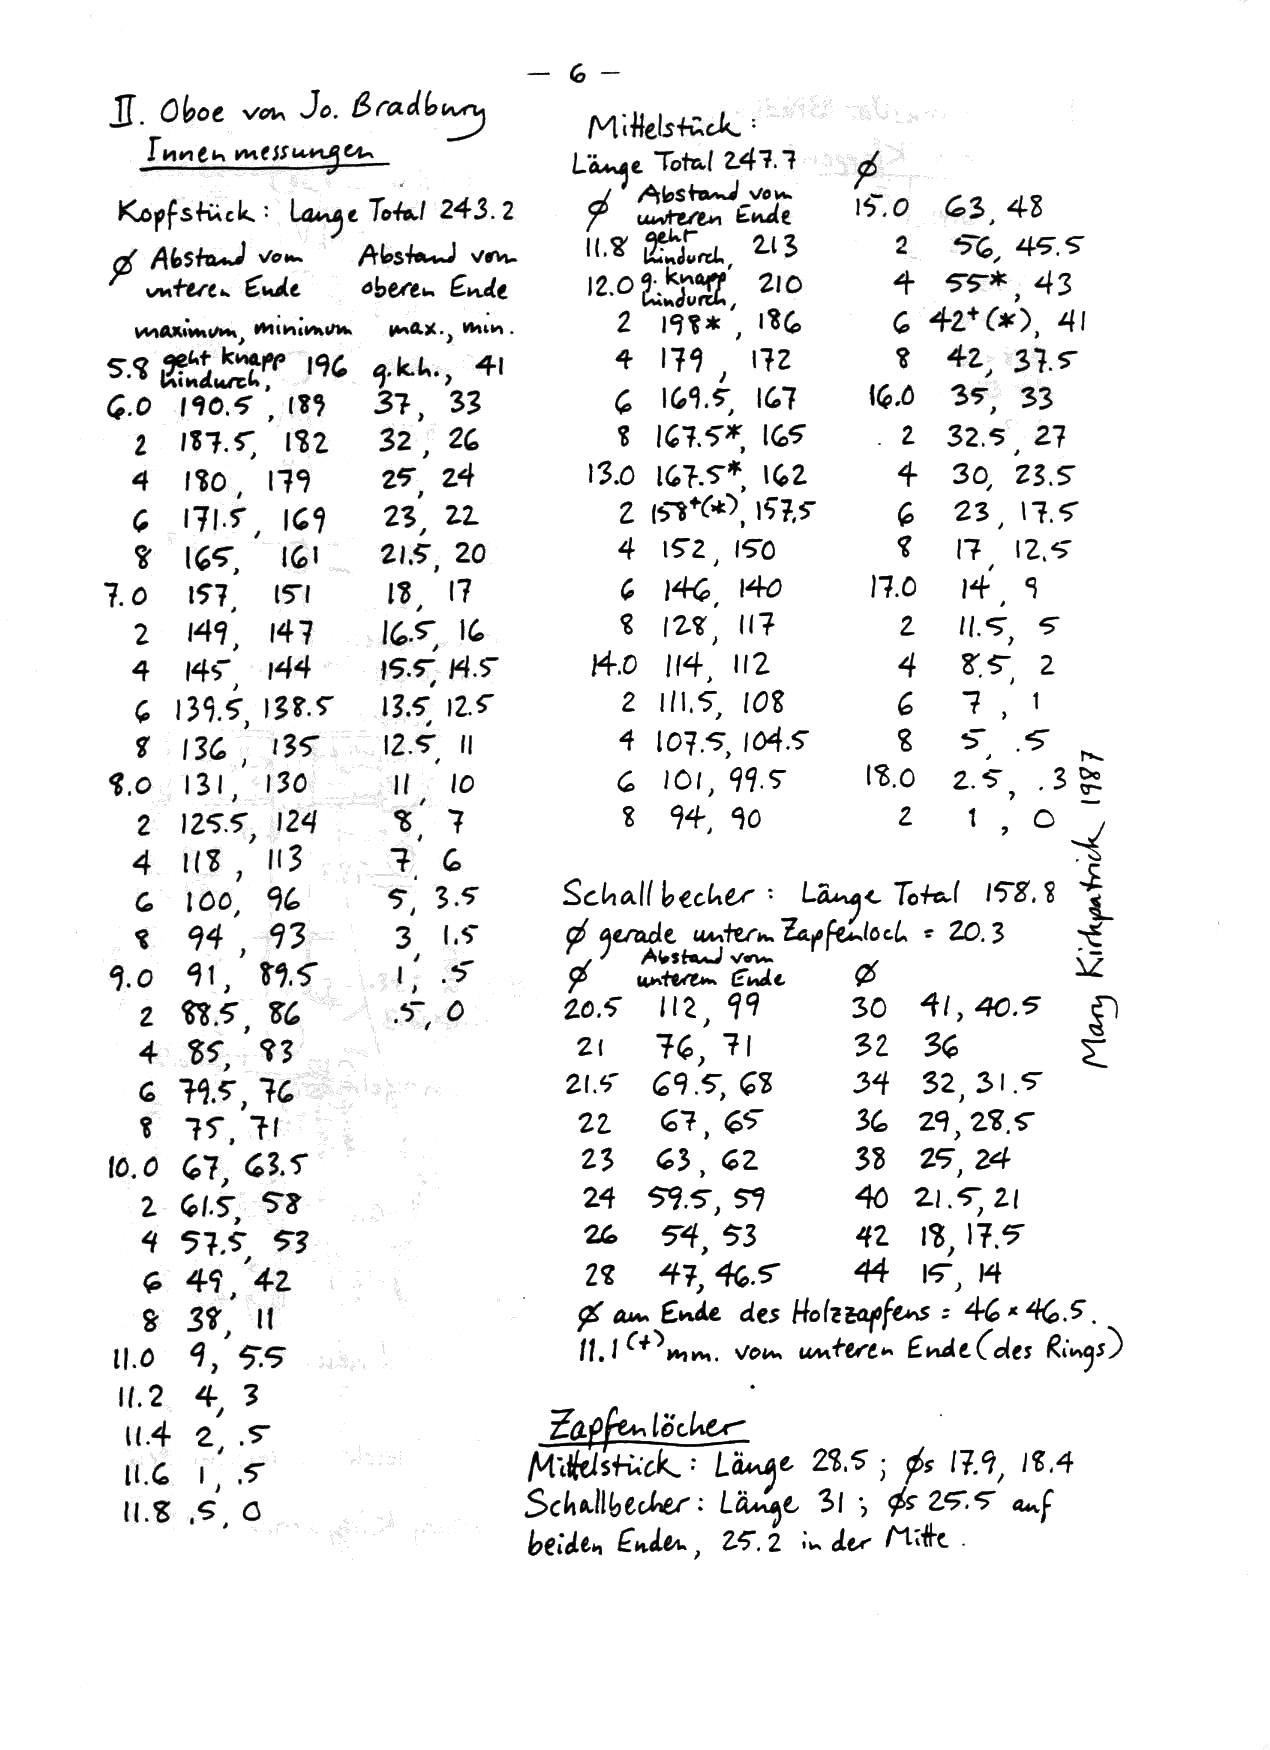 — 6 —
II. Oboe von Jo. Bradbury
Innenmessungen
Kopfstück: Länge Total 243.2
Ø Abstand vom Abstand vom
unteren Ende oberen Ende
maximum, minimum max., min.
5.8 geht knapp hindurch, 196 g.k.h., 41
6.0 190.5, 189 37, 33
2 187.5, 182 32, 26
4 180, 179 25, 24
6 171.5, 169 23, 22
8 165, 161 21.5, 20
7.0 157, 151 18, 17
2 149, 147 16.5, 16
4 145, 144 15.5, 14.5
6 139.5, 138.5 13.5, 12.5
8 136, 135 12.5, 11
8.0 131, 130 11, 10
2 125.5, 124 8, 7
4 118, 113 7, 6
6 100, 96 5, 3.5
8 94, 93 3, 1.5
9.0 91, 89.5 1, .5
2 88.5, 86 .5, 0
4 85, 83
6 79.5, 76
8 75, 71
10.0 67, 63.5
2 61.5, 58
4 57.5, 53
6 49, 42
8 38, 11
11.0 9, 5.5
11.2 4, 3
11.4 2, .5
11.6 1, .5
11.8 .5, 0
Mittelstück:
Länge Total 247.7
Ø Abstand vom
unteren Ende
11.8 geht hindurch, 213
12.0 g. knapp hindurch, 210
2 198*, 186
4 179, 172
6 169.5, 167
8 167.5*, 165
13.0 167.5*, 162
2 158+(*), 157.5
4 152, 150
6 146, 140
8 128, 117
14.0 114, 112
2 111.5, 108
4 107.5, 104.5
6 101, 99.5
8 94, 90
Ø
15.0 63, 48
2 56, 45.5
4 55*, 43
6 42+(*), 41
8 42, 37.5
16.0 35, 33
2 32.5, 27
4 30, 23.5
6 23, 17.5
8 17, 12.5
17.0 14, 9
2 11.5, 5
4 8.5, 2
6 7, 1
8 5, .5
18.0 2.5, .3
2 1, 0
Schallbecher: Länge Total 158.8
Ø gerade unterm Zapfenloch = 20.3
Ø Abstand vom
unterem Ende Ø
20.5 112, 99 30 41, 40.5
21 76, 71 32 36
21.5 69.5, 68 34 32, 31.5
22 67, 65 36 29, 28.5
23 63, 62 38 25, 24
24 59.5, 59 40 21.5, 21
26 54, 53 42 18, 17.5
28 47, 46.5 44 15, 14
Ø am Ende des Holzzapfens = 46 × 46.5.
11.1(+) mm. vom unteren Ende (des Rings)
Zapfenlöcher
Mittelstück: Länge 28.5; Øs 17.9, 18.4
Schallbecher: Länge 31; Øs 25.5 auf
beiden Enden, 25.2 in der Mitte.
Mary Kirkpatrick 1987